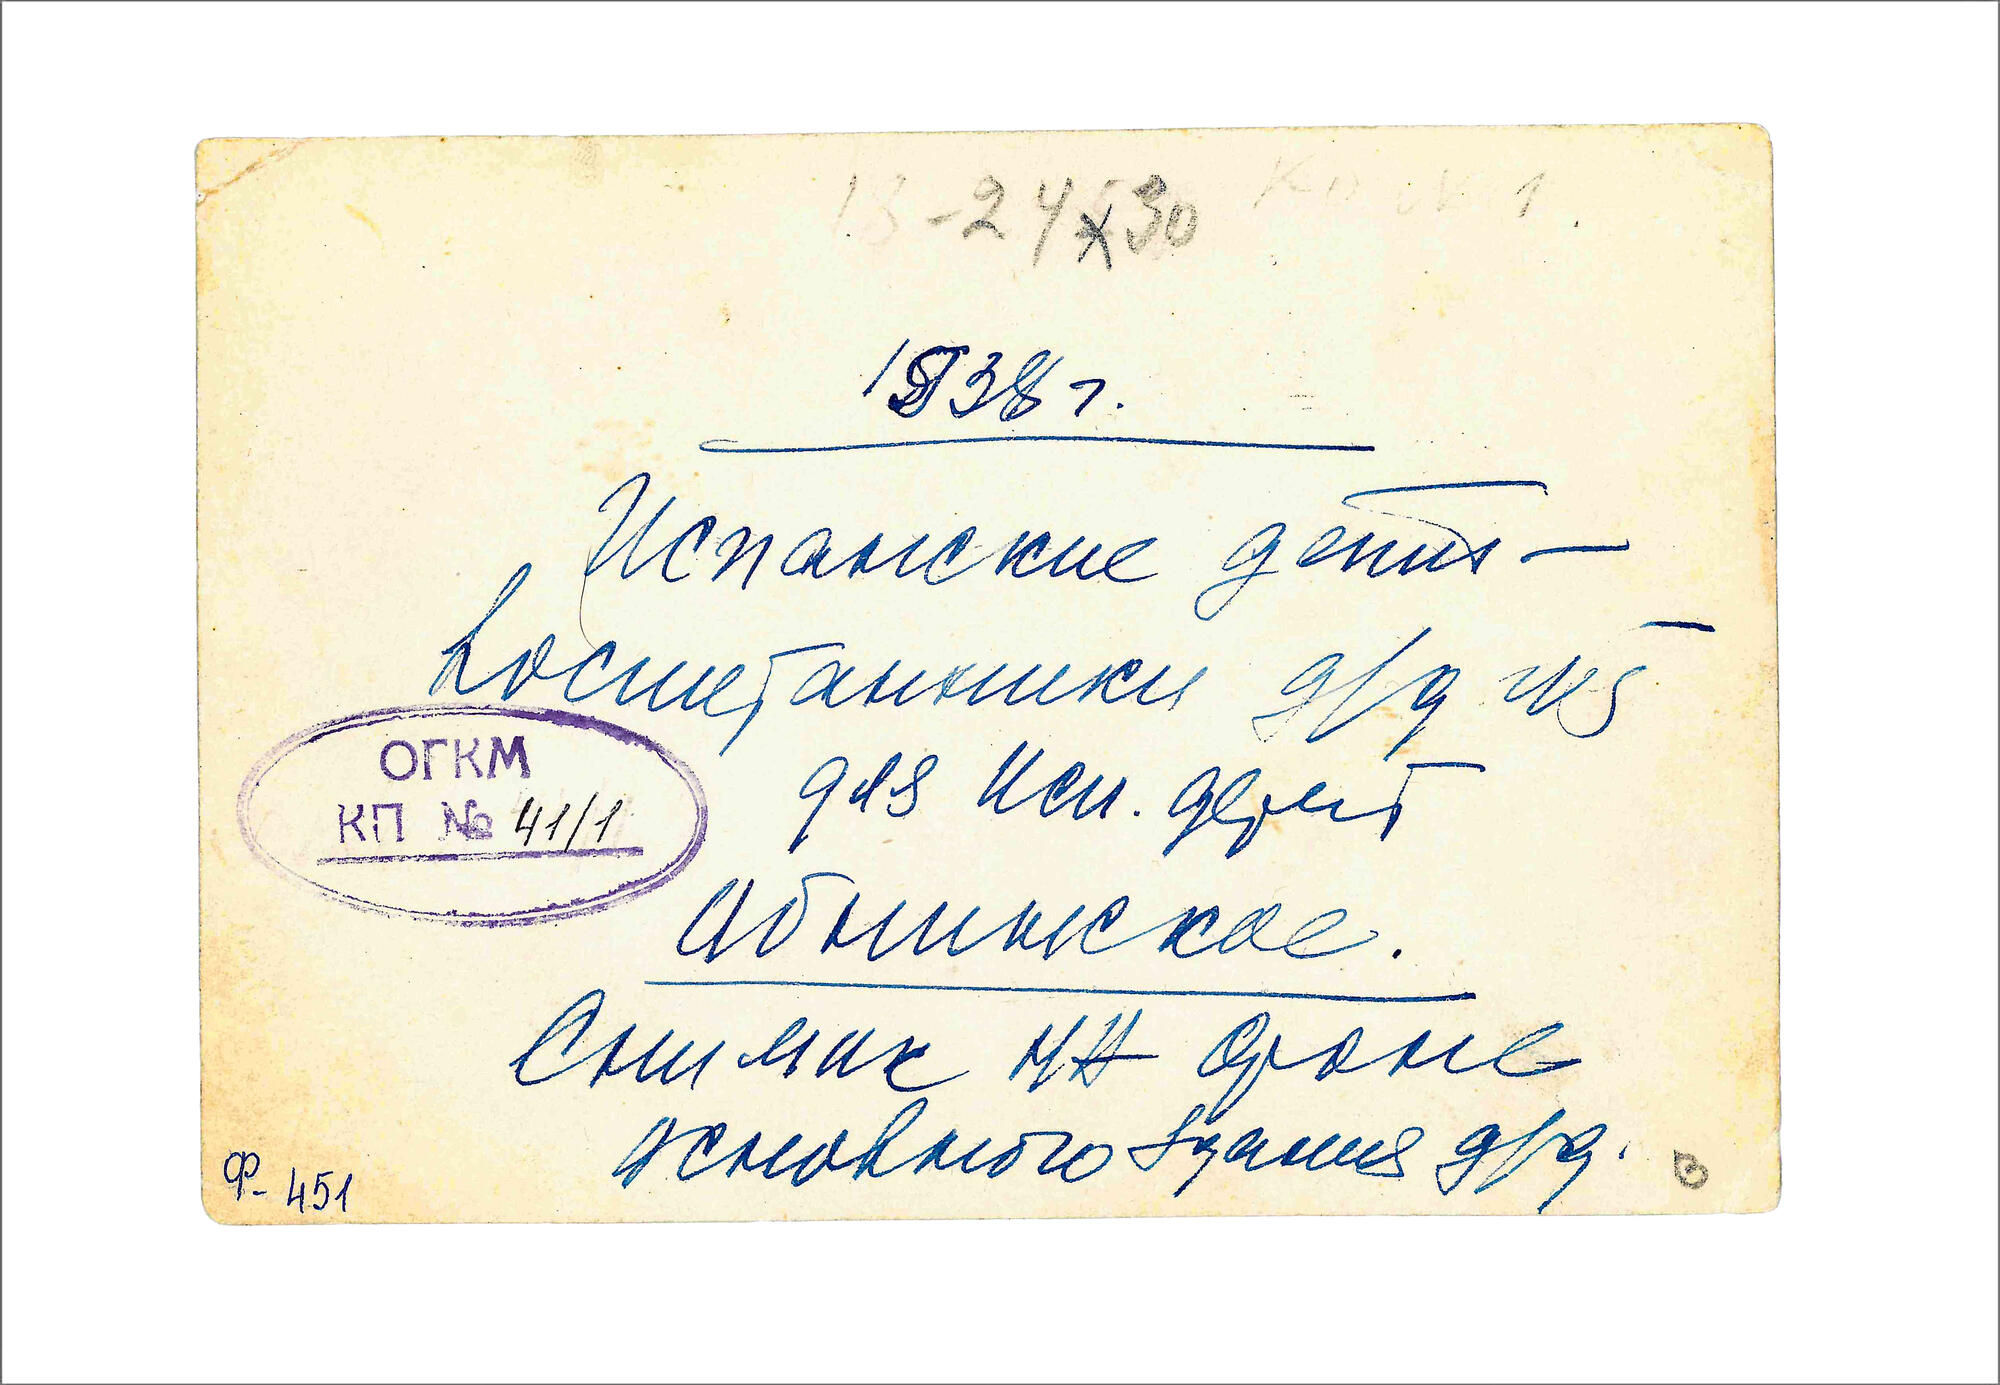 -24х30
1938 г.
Испанские дети —
воспитанники д/д №5
для Исп. детей
Обнинское.
Снимок на фоне
основного здания д/д.
ОГКМ
КП № 41/1
Ф- 451